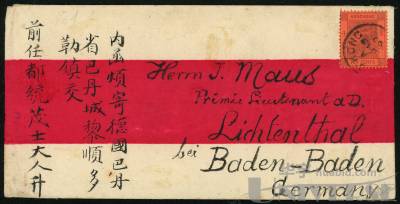 內函煩寄德國巴丹
省巴丹城黎順多
勒鎮交
前任都統茂士大人升
Herrn J. Maus
Primier Lieutenant a.D.
Lichtenthal
bei Baden-Baden
Germany
HONG